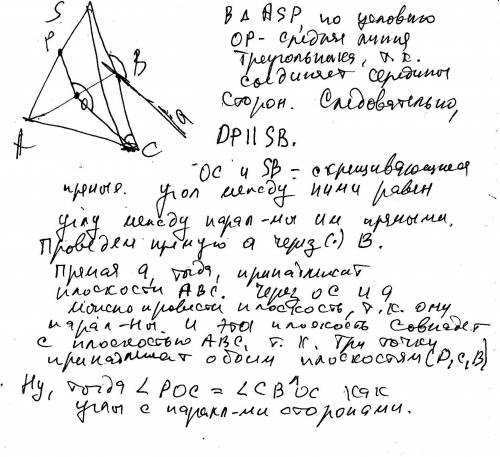 S
P
B
O
A
C
a
В Δ ASP, по условию
OP - средняя линия
треугольника, т.к.
соединяет середины
сторон. Следовательно,
OP || SB.
OC и SB - скрещивающиеся
прямые. угол между ними равен
углу между парал-мы им прямыми.
Проведем прямую a через (·) B.
Прямая a, тогда, принадлежит
плоскости ABC. Через OC и a
можно провести плоскость, т.к. они
парал-ны. и эта плоскость совпадет
с плоскостью ABC, т.к. три точки
принадлежат обоим плоскостям (O, C, B)
Ну, тогда ∠POC = ∠CB^OC как
углы с паралл-ми сторонами.